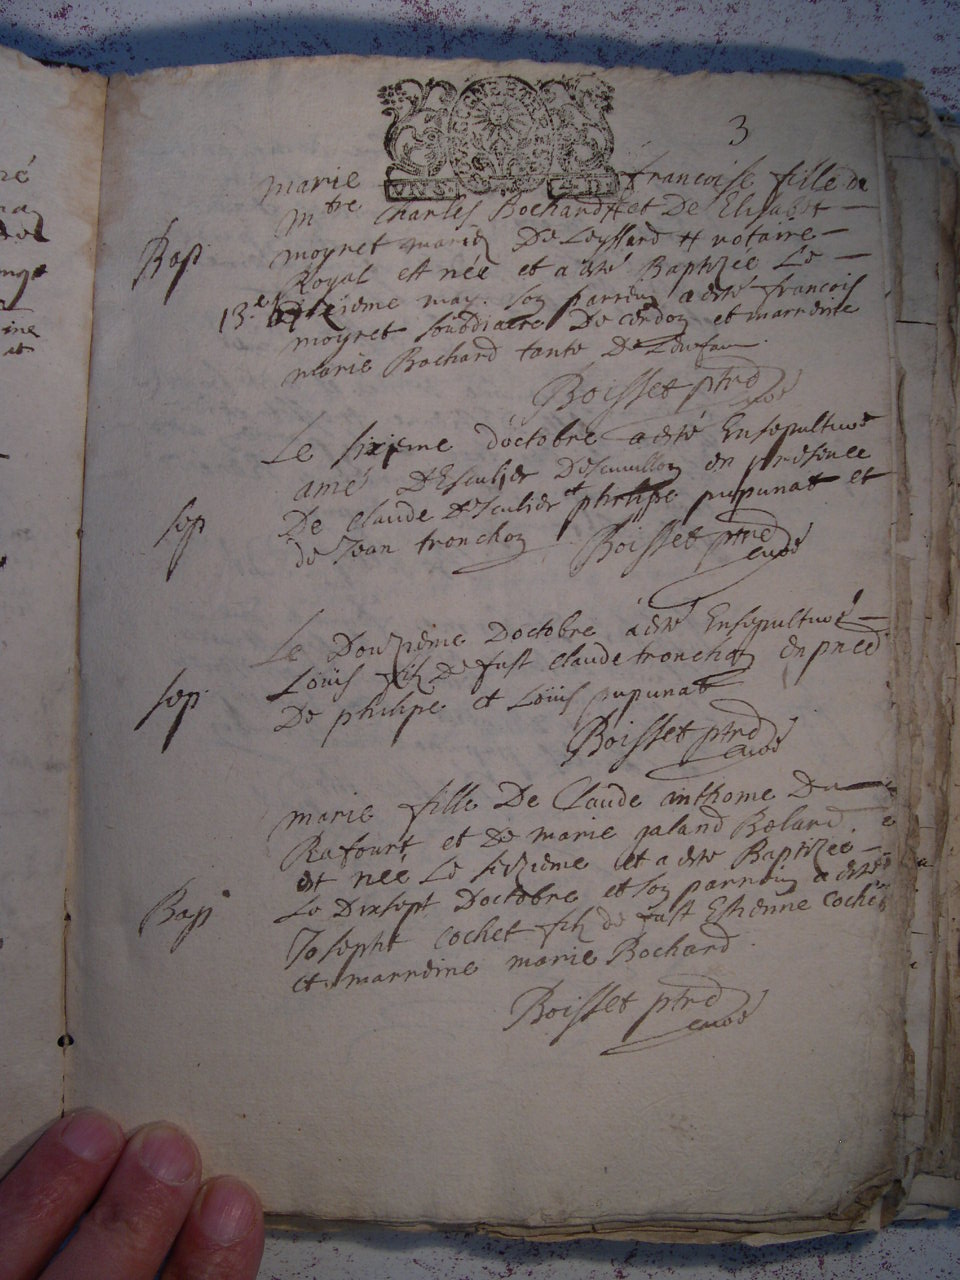 3
BOURGOGNE ET BRESSE
UN S. 4 D.
marie francoise fille de
Mtre Charles Bochard # et De Elisabet
Bap moyret mariez De Leyssard # notaire
Royal et née et a esté Baptizee Le
13.e treizieme may. son parrein a esté francois
moyret soubdiacre De cerdon et marreine
marie Bochard tante De L'enfan
Boisset ptre
curé
Le sixieme d'octobre a esté Ensepulturé
amé Desculier Descuvillon en presence
sep De Claude Desculier et philippe pupunat et
de Jean tronchon Boisset ptre
curé
Le Douzieme Doctobre a esté Ensepulturé
sep. Loüis filz De fust Claude tronchon en pnce
De philipe et Loüis pupunat
Boisset ptre
curé
marie fille De Claude anthome Du
Rafourt et de marie galand Bolard
et neé Le seizieme et a este Baptizee
Bap Le Dixsept Doctobre et son parrein a esté
Josepht cochet filz de fust Estienne cochet
et marreine marie Bochard
Boisset ptre
curé